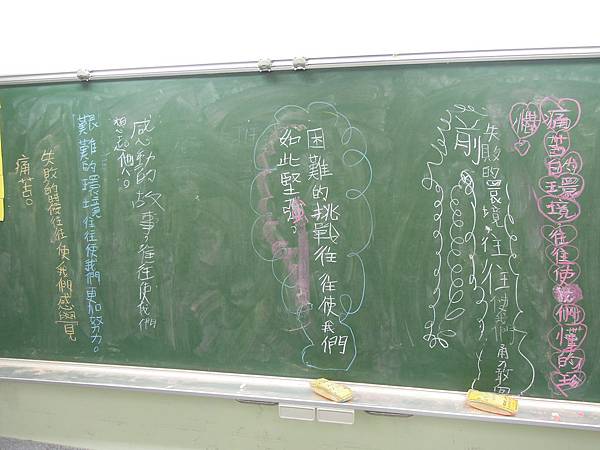 痛苦的環境往往使我們懂的珍
惜。
失敗的環境往往使我們勇敢
前
困難的挑戰往往使我們
如此堅強。
感動的故事往往使我們
想起人。
艱難的環境往往使我們更加努力。
失敗的往往使我們感見
痛苦。